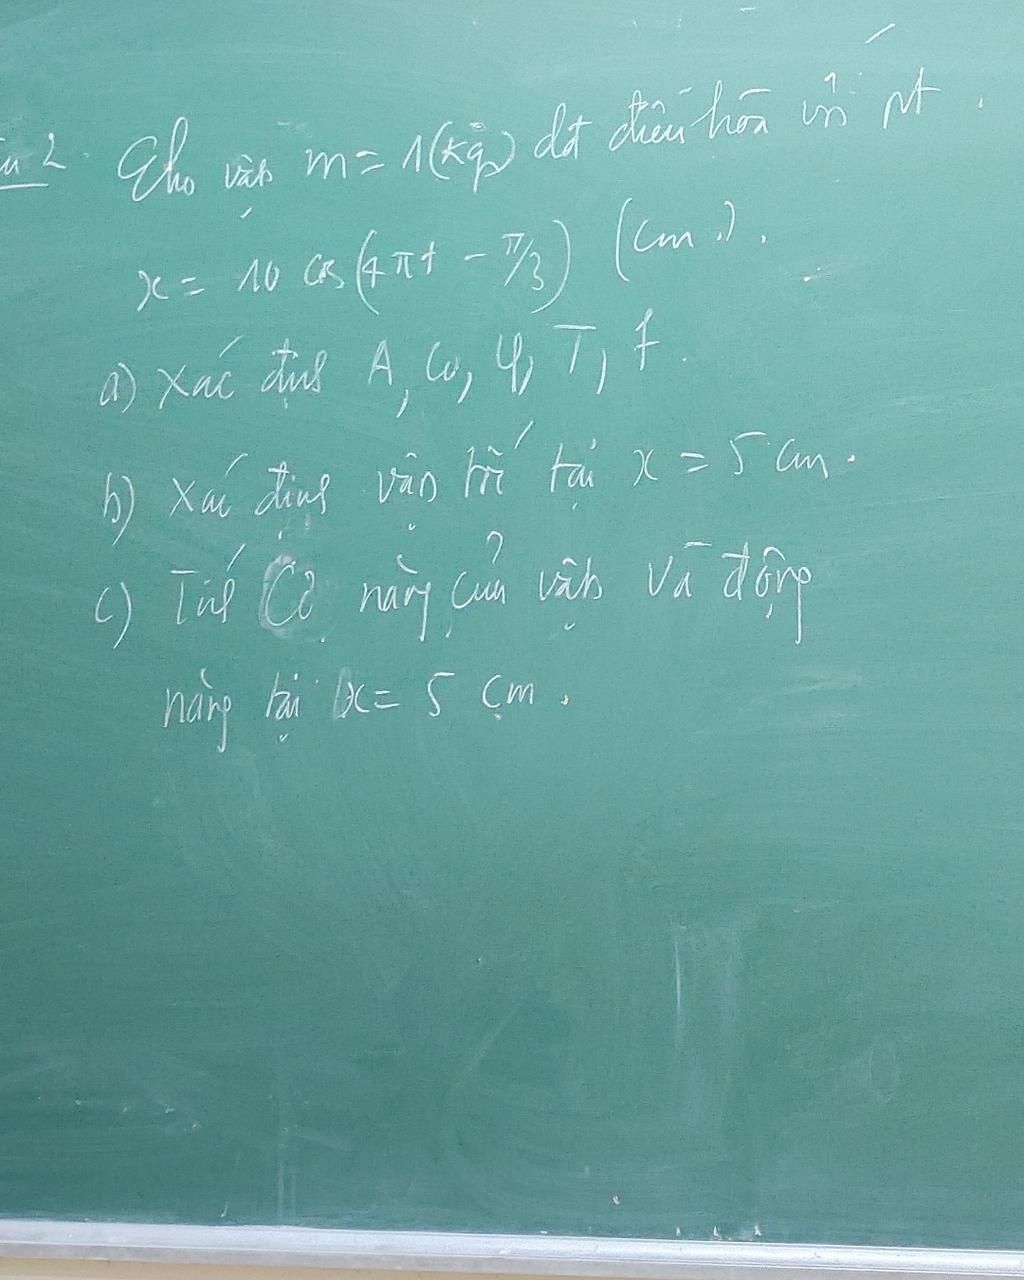 Câu 2. Cho vật m = 1(kg) dđ điều hòa với pt.
x = 10 cos(4πt - π/3) (cm).
a) Xác định A, ω, φ, T, f.
b) Xác định vận tốc tại x = 5 cm.
c) Tính Cơ năng của vật và động
năng tại x = 5 cm.